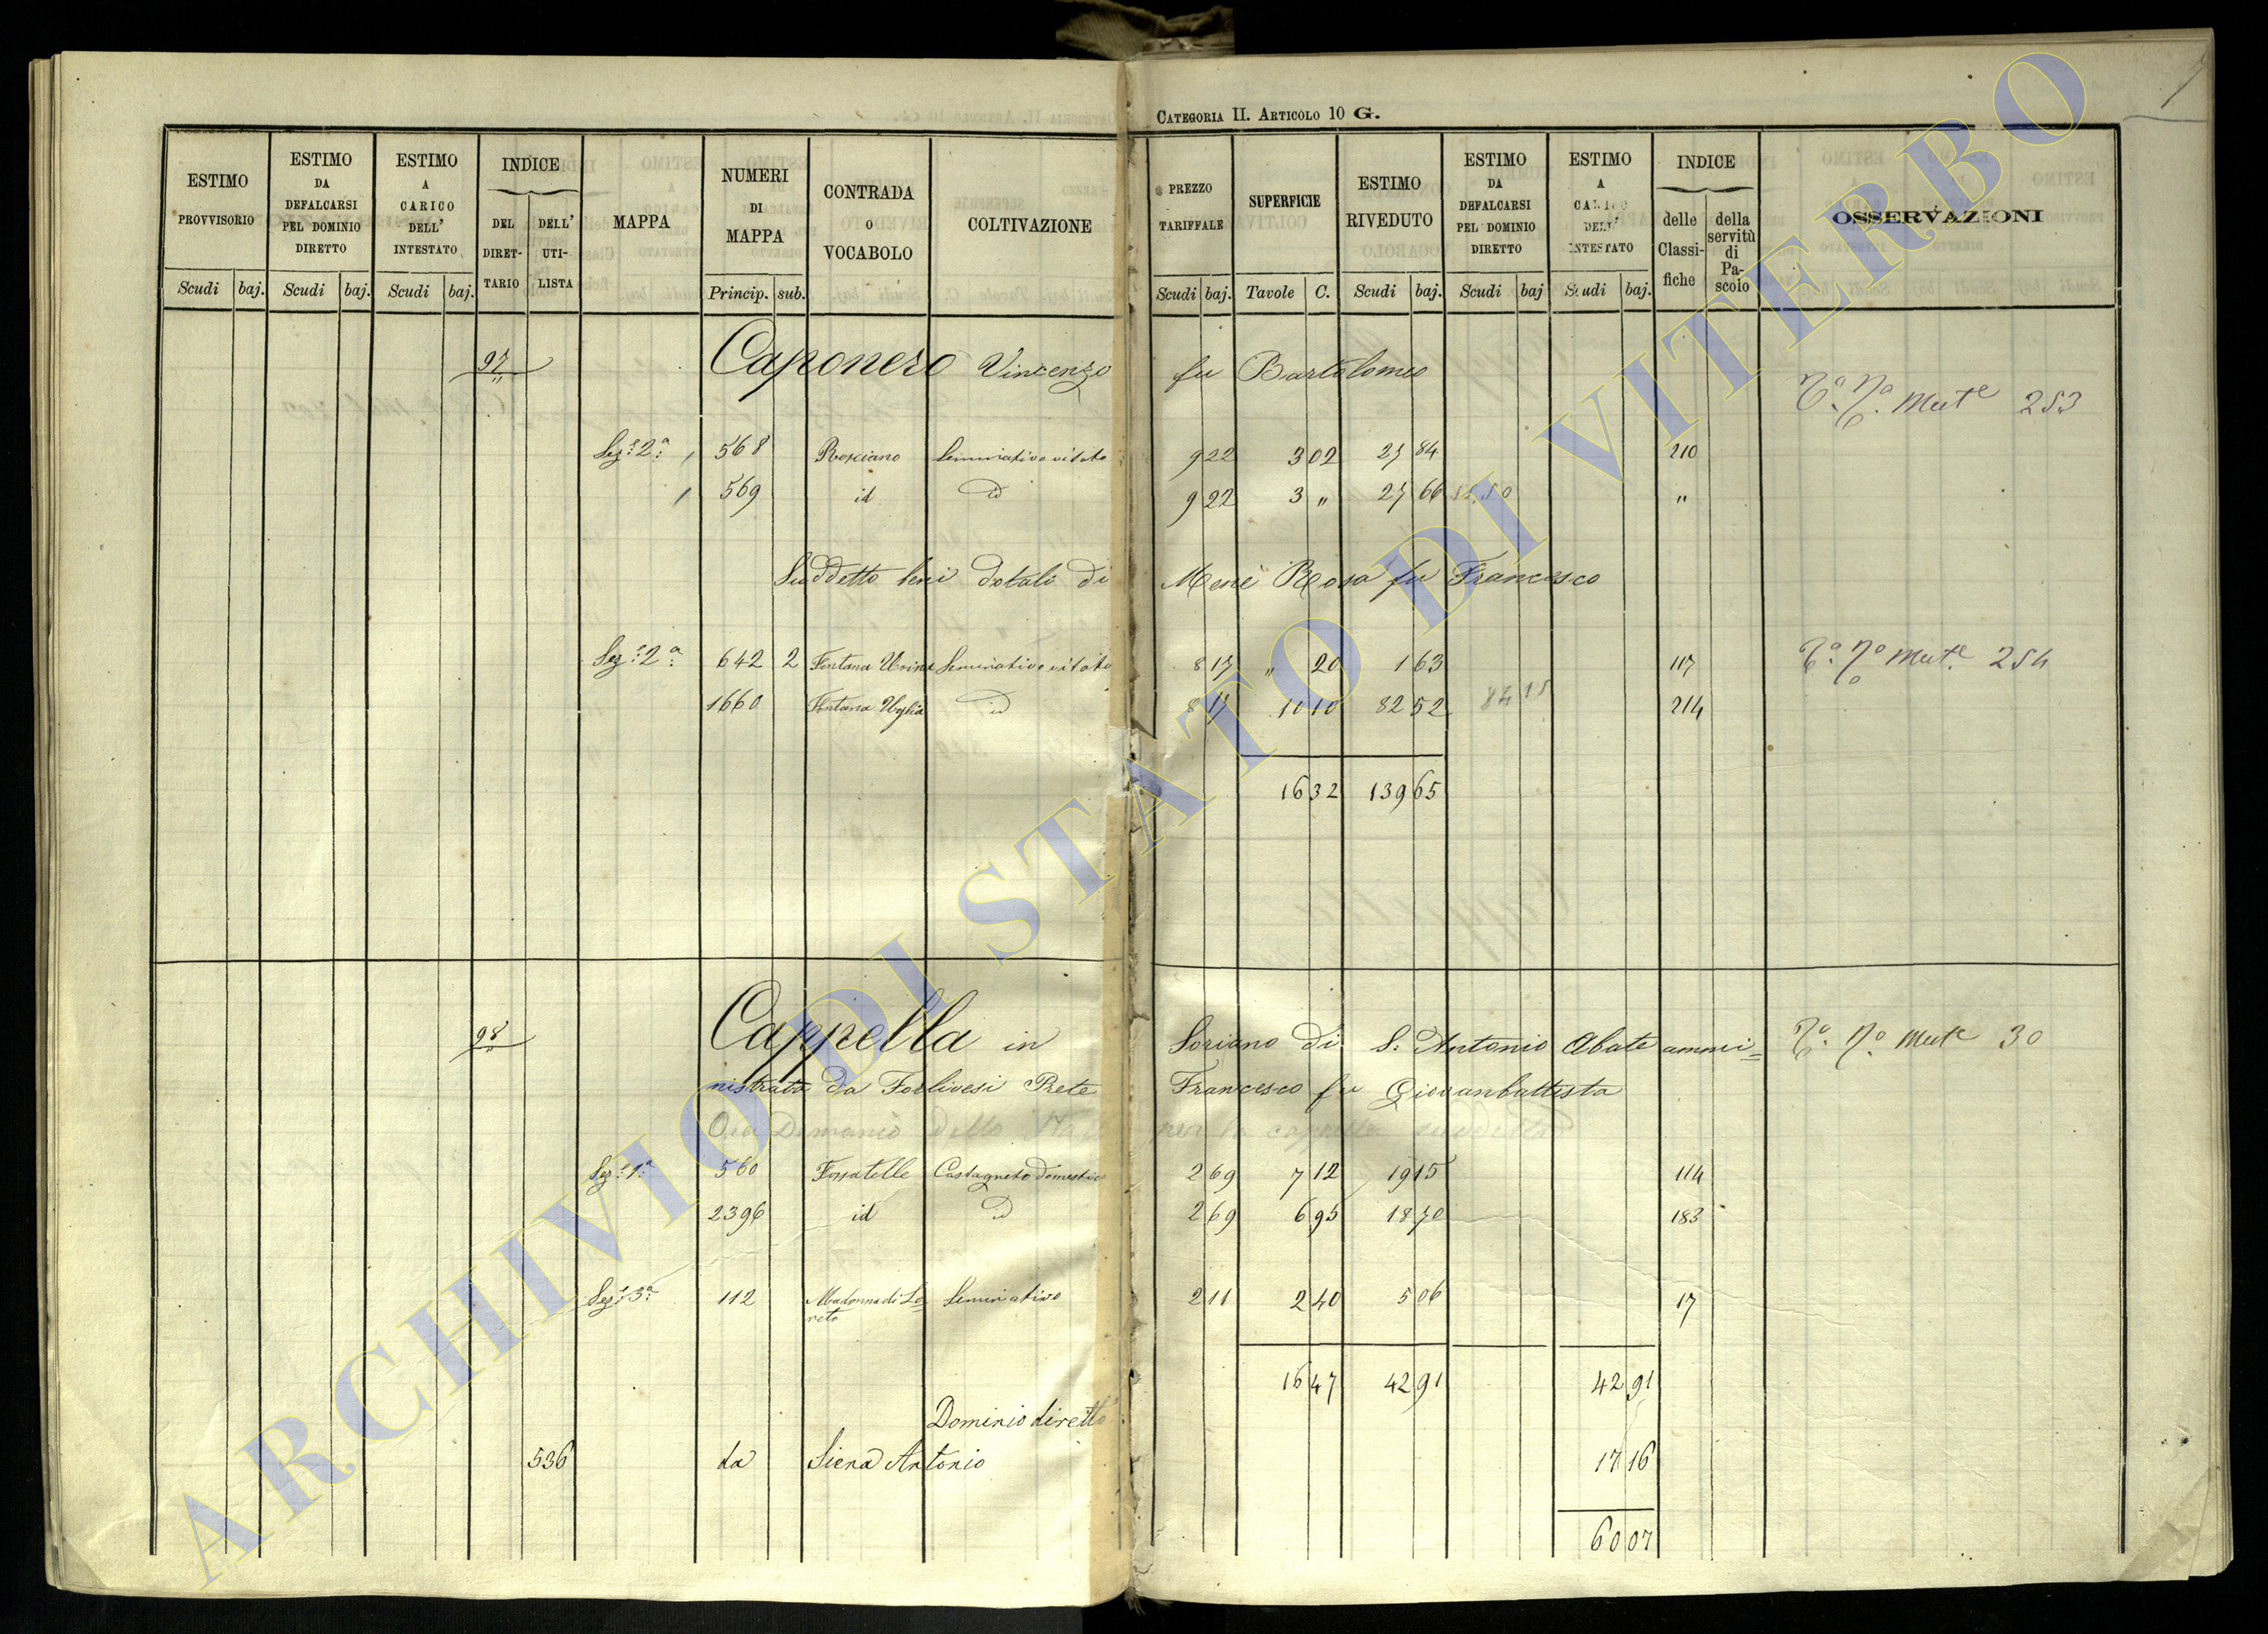 CATEGORIA II. ARTICOLO 10 G.
ESTIMO PROVVISORIO Scudi baj.
ESTIMO DA DEFALCARSI PEL DOMINIO DIRETTO Scudi baj.
ESTIMO A CARICO DELL' INTESTATO Scudi baj.
INDICE DEL DIRETTARIO DELL' UTILISTA
MAPPA
NUMERI DI MAPPA Princip. sub.
CONTRADA O VOCABOLO
COLTIVAZIONE
PREZZO TARIFFALE Scudi baj.
SUPERFICIE Tavole C.
ESTIMO RIVEDUTO Scudi baj.
ESTIMO DA DEFALCARSI PEL DOMINIO DIRETTO Scudi baj
ESTIMO A CARICO DELL' INTESTATO Scudi baj.
INDICE delle Classifiche della servitù di Pascolo
OSSERVAZIONI
97 Caponero Vincenzo fu Bartolomeo Mut.e 253
Sez.e 2a 568 Rosciano Seminativo vitato 9 22 3 02 27 84 210
569 id id 9 22 3 " 27 66 "
Suddetto beni dotali di Mené Rosa fu Francesco
Sez.e 2a 642 2 Seminativo vitato 8 17 " 20 1 63 117 Mut.e 254
1660 id 8 17 10 10 82 52 214
16 32 139 65
98 Cappella in Soriano di S. Antonio Abate ammi= Mut.e 30
nistrata da Forlivesi Prete Francesco fu Giovanbattista
Ora Demanio dello per la cappella suddetta
Sez.e 1a 560 Fossatelle Castagneto domestico 2 69 7 12 19 15 114
2396 id id 2 69 6 95 18 70 183
Sez.e 3a 112 Madonna di Lo= Seminativo 2 11 2 40 5 06 17
reto
16 47 42 91 42 91
Dominio diretto
536 da Siena Antonio 17 16
60 07
ARCHIVIO DI STATO DI VITERBO